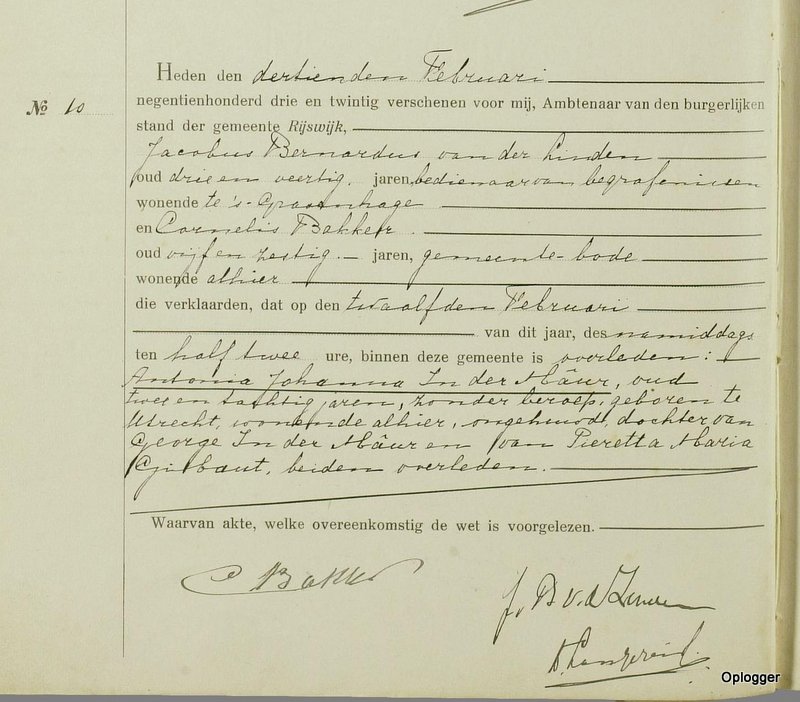 Heden den dertienden Februari
№ 10
negentienhonderd drie en twintig verschenen voor mij, Ambtenaar van den burgerlijken
stand der gemeente Rijswijk,
Jacobus Bernardus van der Linden
oud drie en veertig, jaren, bedienaar van begrafenissen
wonende te 's-Gravenhage
en Cornelis Bakker
oud vijf en zestig jaren, gemeente-bode
wonende alhier
die verklaarden, dat op den twaalfden Februari
van dit jaar, des namiddags
ten half twee ure, binnen deze gemeente is overleden:
Antonia Johanna In der Mâur, oud
twee en tachtig jaren, zonder beroep, geboren te
Utrecht, wonende alhier, ongehuwd, dochter van
George In der Mâur en van Pieretta Maria
beiden overleden.
Waarvan akte, welke overeenkomstig de wet is voorgelezen.
C Bakker
J. B v. d Linden
Oplogger